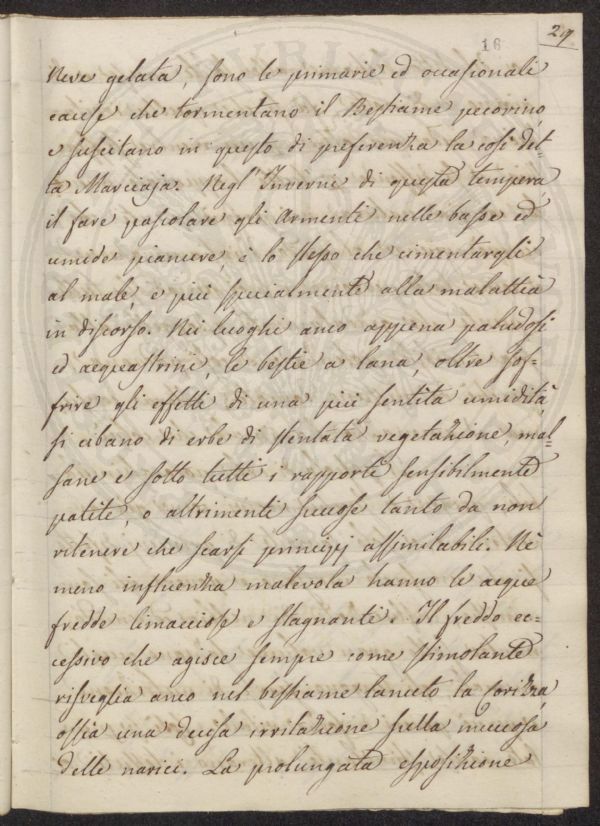 16
29
Neve gelata, sono le primarie ed occasionali
cause che tormentano il Bestiame pecorino,
e suscitano in questo di preferenza la così det-
ta Marciaja. Negl' Inverni di questa tempera
il fare pascolare gli Armenti nelle basse ed
umide pianure, è lo stesso che cimentargli
al male, e più specialmente alla malattia
in discorso. Nei luoghi anco appena paludosi
ed acqueastrini, le bestie a lana, oltre sof-
frire gli effetti di una più sentita umidità,
si cibano di erbe di stentata vegetazione, mal-
sane e sotto tutti i rapporti sensibilmente
patite, o altrimenti succose tanto da non
ritenere che scarsi principj assimilabili. Nè
meno influenza malevola hanno le acque
fredde limacciose e stagnanti. Il freddo ec-
cessivo che agisce sempre come stimolante
risveglia anco nel bestiame lanuto la corizza,
ossia una decisa irritazione sulla muccosa
delle narici. La prolungata esposizione